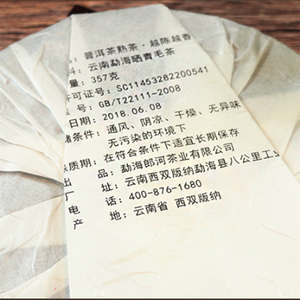 ：普洱茶熟茶，越陈越香
料：云南勐海晒青毛茶
量：357克
许可证号：SC11453282200541
号：GB/T22111-2008
期：2018.06.08
储条件：通风、阴凉、干燥、无异味
无污染的环境下
质期：在符合条件下适宜长期保存
出品：勐海郎河茶业有限公司
厂址：云南西双版纳勐海县八公里工
电话：400-876-1680
产地：云南省 西双版纳